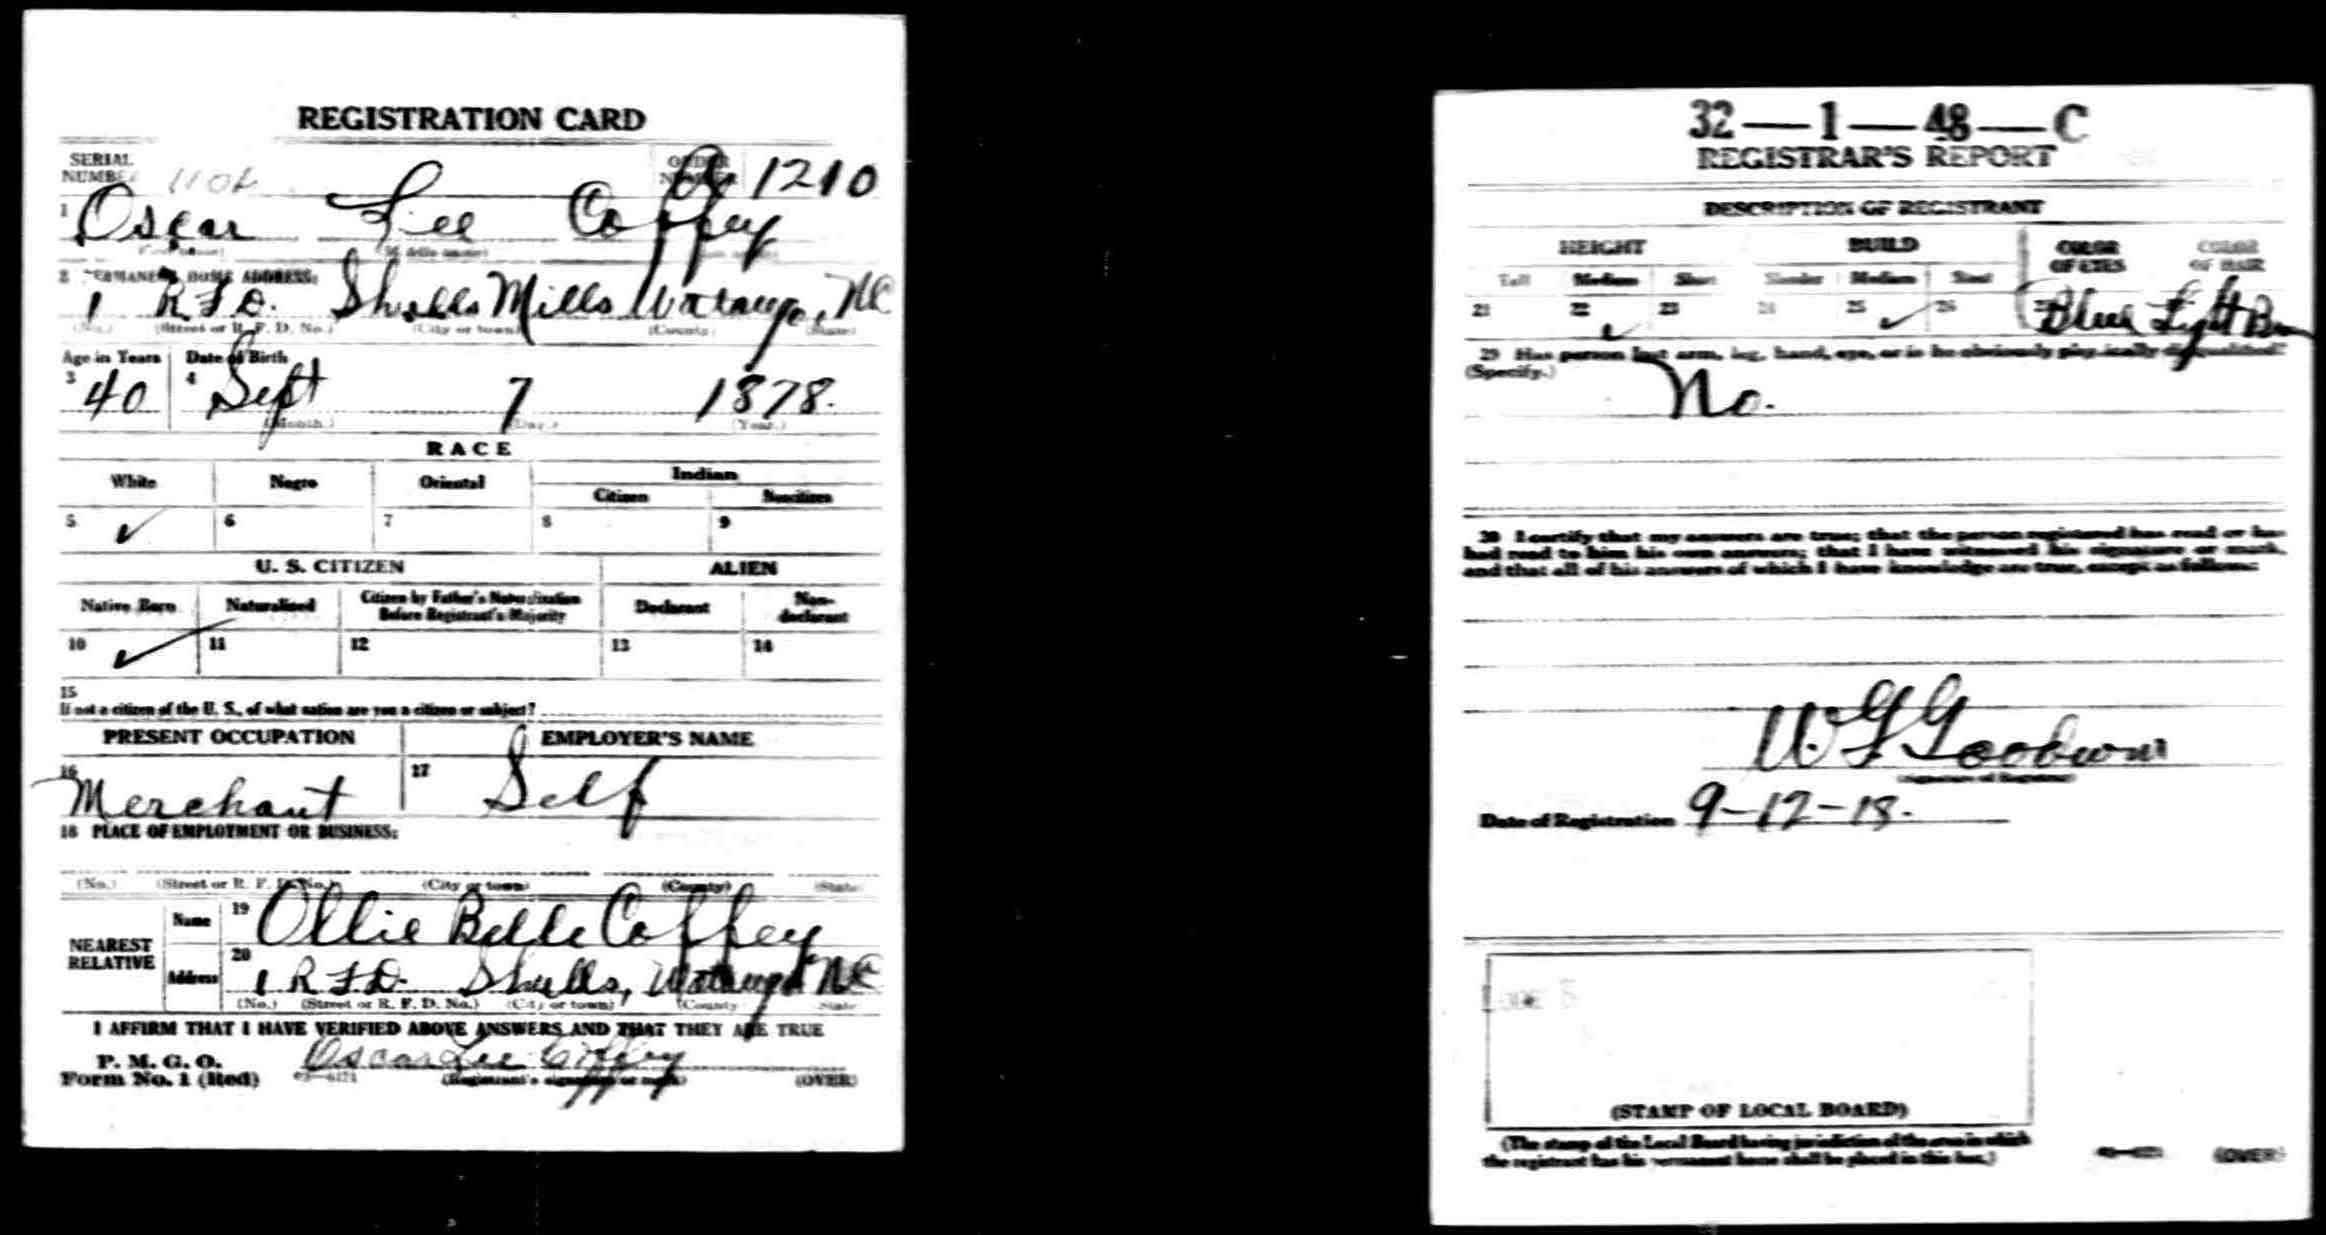 REGISTRATION CARD
SERIAL NUMBER
ORDER NUMBER A 1210
1 Oscar Lee Coffey
(First name) (Middle name) (Last name)
2 PERMANENT HOME ADDRESS:
1 R F D. Shulls Mills Watauga, NC
(No.) (Street or R. F. D. No.) (City or town) (County) (State)
Age in Years Date of Birth
3 40 4 Sept 7 1878.
(Month.) (Day.) (Year.)
RACE
White Negro Oriental Indian
Citizen Noncitizen
5 ✓ 6 7 8 9
U. S. CITIZEN ALIEN
Native Born Naturalized Citizen by Father's Naturalization Before Registrant's Majority Declarant Non-declarant
10 ✓ 11 12 13 14
15
If not a citizen of the U. S., of what nation are you a citizen or subject?
PRESENT OCCUPATION EMPLOYER'S NAME
16 Merchant 17 Self
18 PLACE OF EMPLOYMENT OR BUSINESS:
(No.) (Street or R. F. D. No.) (City or town) (County) (State)
NEAREST RELATIVE
Name 19 Ollie Belle Coffey
Address 20 1 R F D. Shulls, Watauga NC
(No.) (Street or R. F. D. No.) (City or town) (County) (State)
I AFFIRM THAT I HAVE VERIFIED ABOVE ANSWERS AND THAT THEY ARE TRUE
P. M. G. O.
Form No. 1 (Red) Oscar Lee Coffey
(Registrant's signature or mark) (OVER)
32—1—48—C
REGISTRAR'S REPORT
DESCRIPTION OF REGISTRANT
HEIGHT BUILD COLOR OF EYES COLOR OF HAIR
Tall Medium Short Slender Medium Stout
21 22 ✓ 23 24 25 ✓ 26 27 Blue Light Bn
29 Has person lost arm, leg, hand, eye, or is he obviously physically disqualified?
(Specify.) No.
30 I certify that my answers are true; that the person registered has read or has
had read to him his own answers; that I have witnessed his signature or mark,
and that all of his answers of which I have knowledge are true, except as follows:
W G Goodwin
(Signature of Registrar)
Date of Registration 9-12-18.
(STAMP OF LOCAL BOARD)
(The stamp of the Local Board having jurisdiction of the area in which
the registrant has his permanent home shall be placed in this box.)
(OVER)